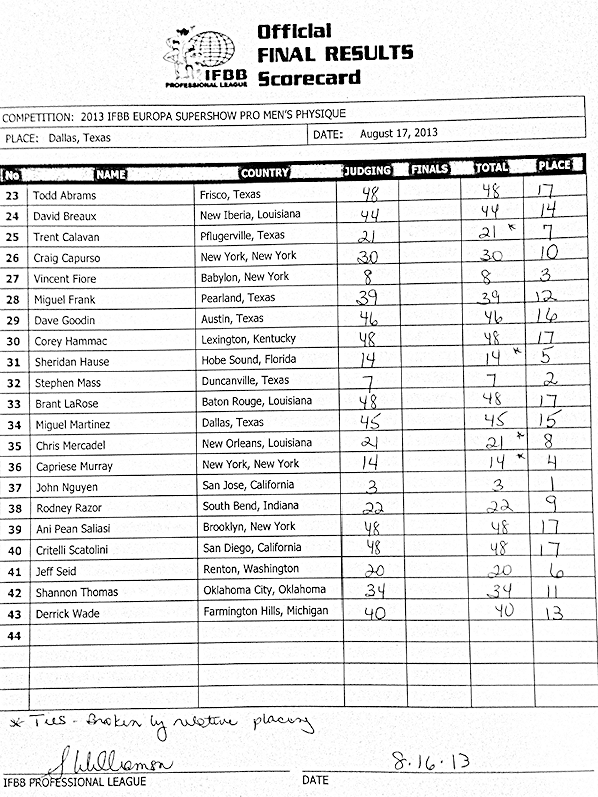 Official
FINAL RESULTS
Scorecard
IFBB
PROFESSIONAL LEAGUE
COMPETITION: 2013 IFBB EUROPA SUPERSHOW PRO MEN'S PHYSIQUE
PLACE: Dallas, Texas DATE: August 17, 2013
No NAME COUNTRY JUDGING FINALS TOTAL PLACE
23 Todd Abrams Frisco, Texas 48 48 17
24 David Breaux New Iberia, Louisiana 44 44 14
25 Trent Calavan Pflugerville, Texas 21 21 * 7
26 Craig Capurso New York, New York 30 30 10
27 Vincent Fiore Babylon, New York 8 8 3
28 Miguel Frank Pearland, Texas 39 39 12
29 Dave Goodin Austin, Texas 46 46 16
30 Corey Hammac Lexington, Kentucky 48 48 17
31 Sheridan Hause Hobe Sound, Florida 14 14 * 5
32 Stephen Mass Duncanville, Texas 7 7 2
33 Brant LaRose Baton Rouge, Louisiana 48 48 17
34 Miguel Martinez Dallas, Texas 45 45 15
35 Chris Mercadel New Orleans, Louisiana 21 21 * 8
36 Capriese Murray New York, New York 14 14 * 4
37 John Nguyen San Jose, California 3 3 1
38 Rodney Razor South Bend, Indiana 22 22 9
39 Ani Pean Saliasi Brooklyn, New York 48 48 17
40 Critelli Scatolini San Diego, California 48 48 17
41 Jeff Seid Renton, Washington 20 20 6
42 Shannon Thomas Oklahoma City, Oklahoma 34 34 11
43 Derrick Wade Farmington Hills, Michigan 40 40 13
44
* Ties - Broken by relative placing
S Williamson 8.16.13
IFBB PROFESSIONAL LEAGUE DATE